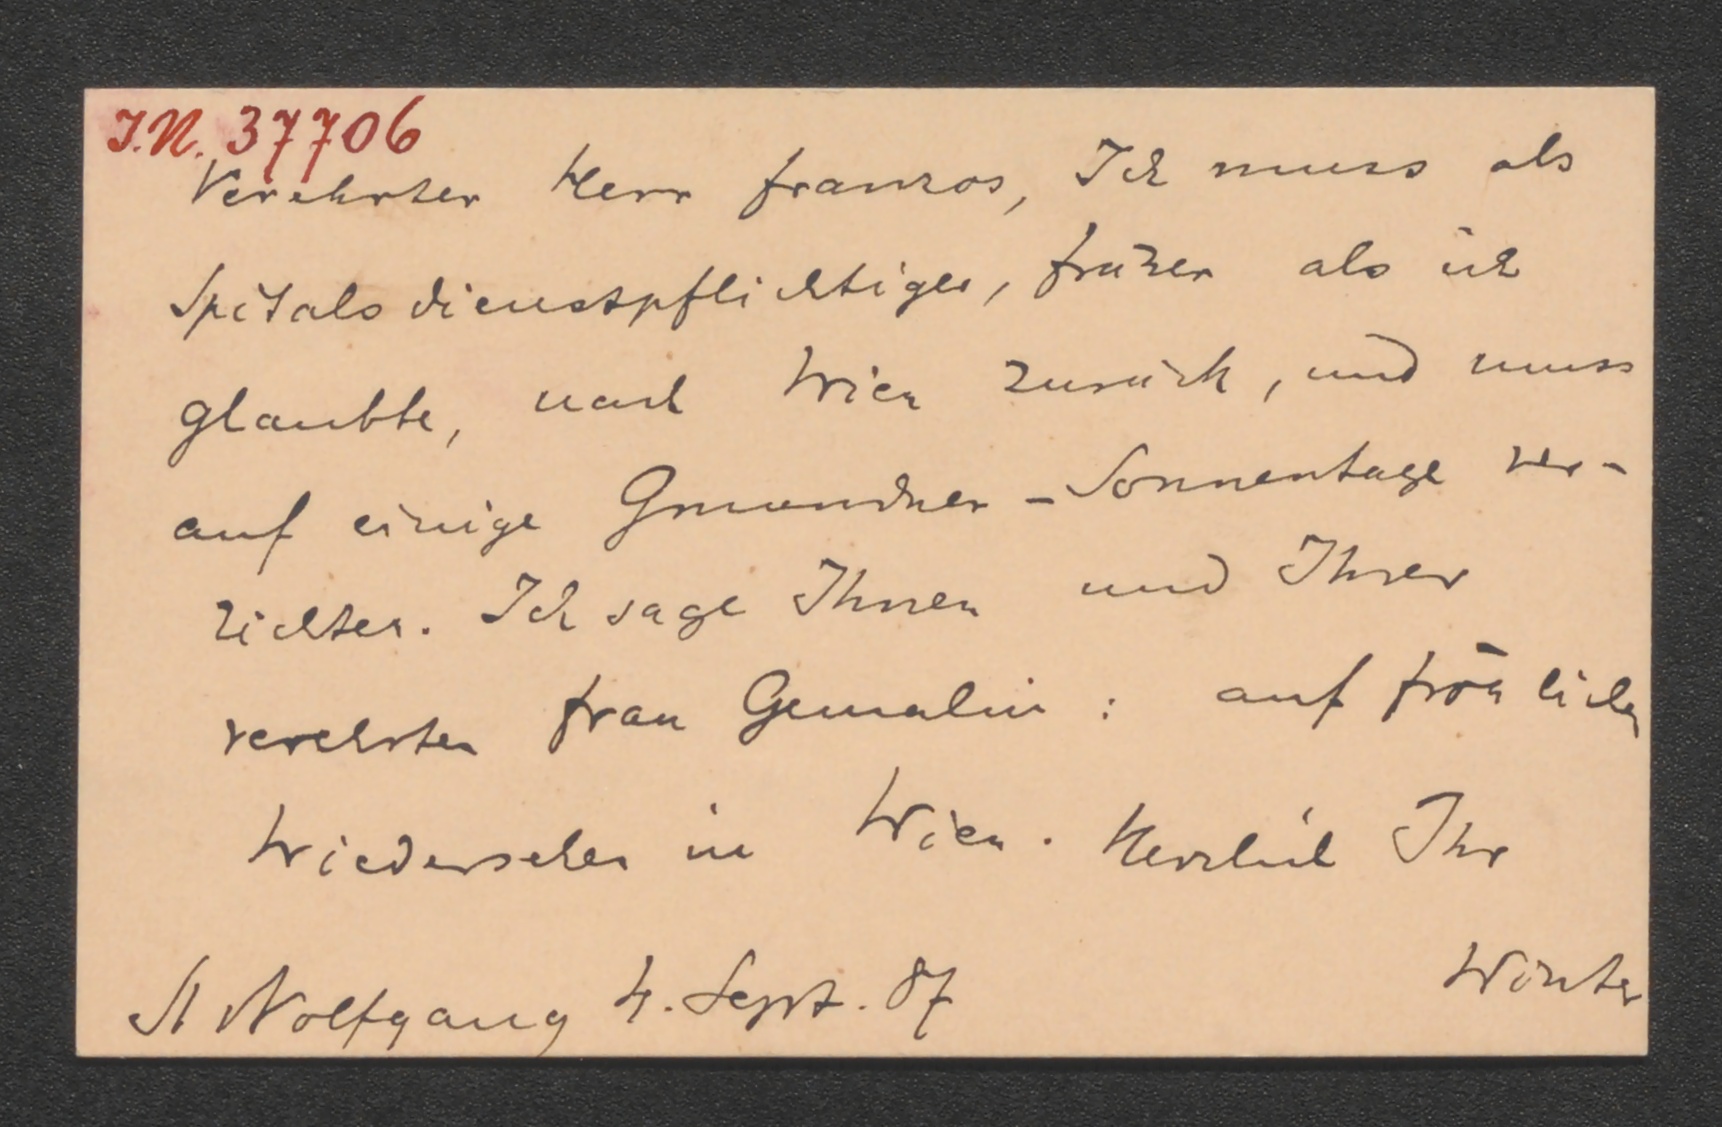 I.N. 37706
Verehrter Herr Franzos, Ich muss als
Spitalsdienstpflichtiger, früher als ich
glaubte, nach Wien zurück, und muss
auf einige Gmundner-Sonnentage ver-
zichten. Ich sage Ihnen und Ihrer
verehrten Frau Gemalin: auf frölichen
Wiedersehen in Wien. Herzlich Ihr
Winter
St Wolfgang 4. Sept. 87